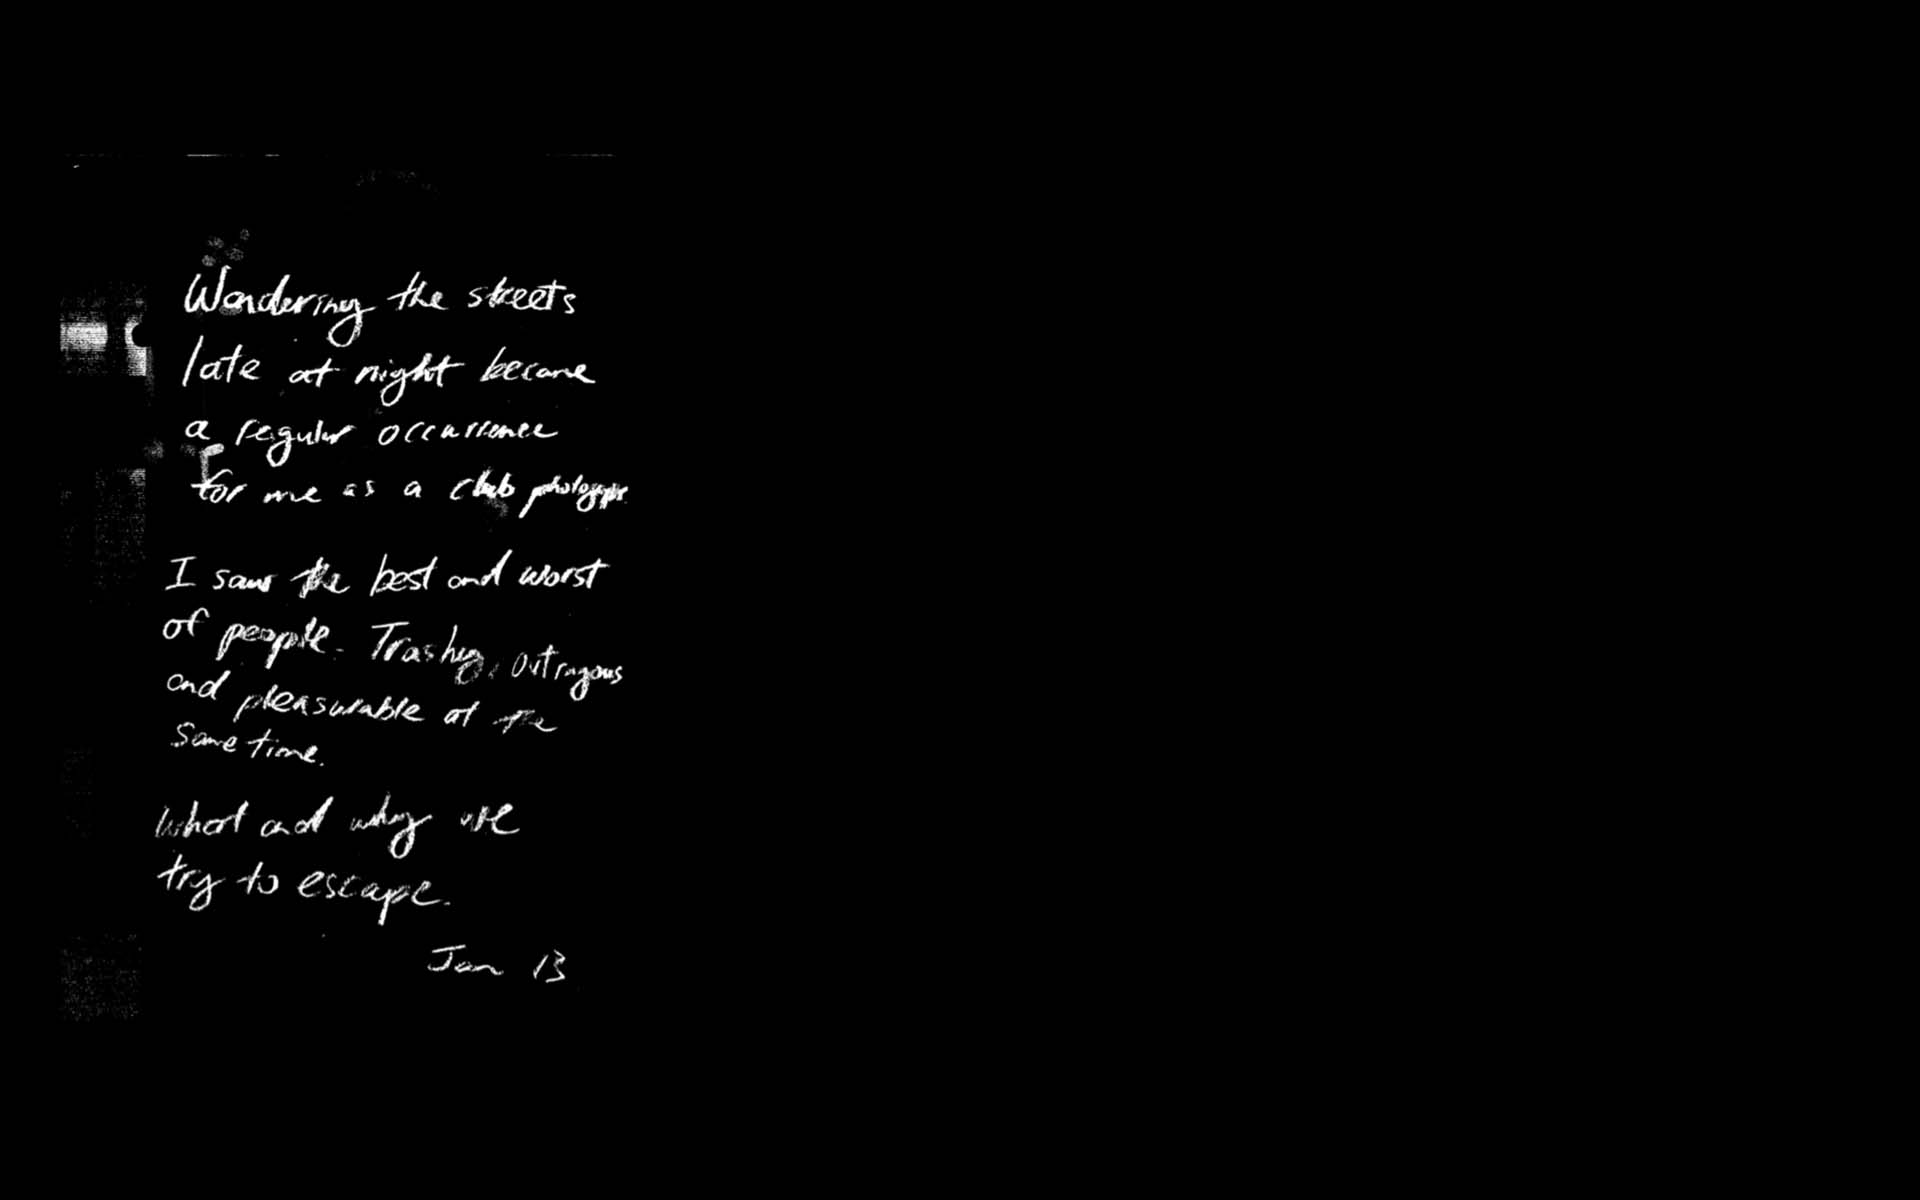 Wandering the streets
late at night became
a regular occurrence
for me as a club
I saw the best and worst
of people. Trashy, outragous
and pleasurable at the
same time.
What and why we
try to escape.
Jan 13